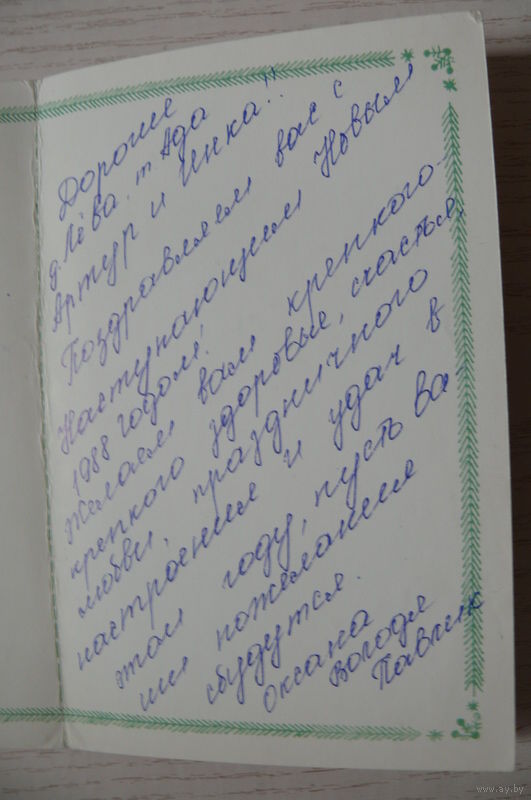 Дорогие
д. Лёва, т. Ада
Артур и Инка!!
Поздравляем вас с
Наступающим Новым
1988 годом!
Желаем вам крепкого-
крепкого здоровье, счастья,
любви, праздничного
настроение и удач в
этом году, пусть ва-
ши пожелания
сбудутся.
Оксана
Володя
Павлик
www.ay.by